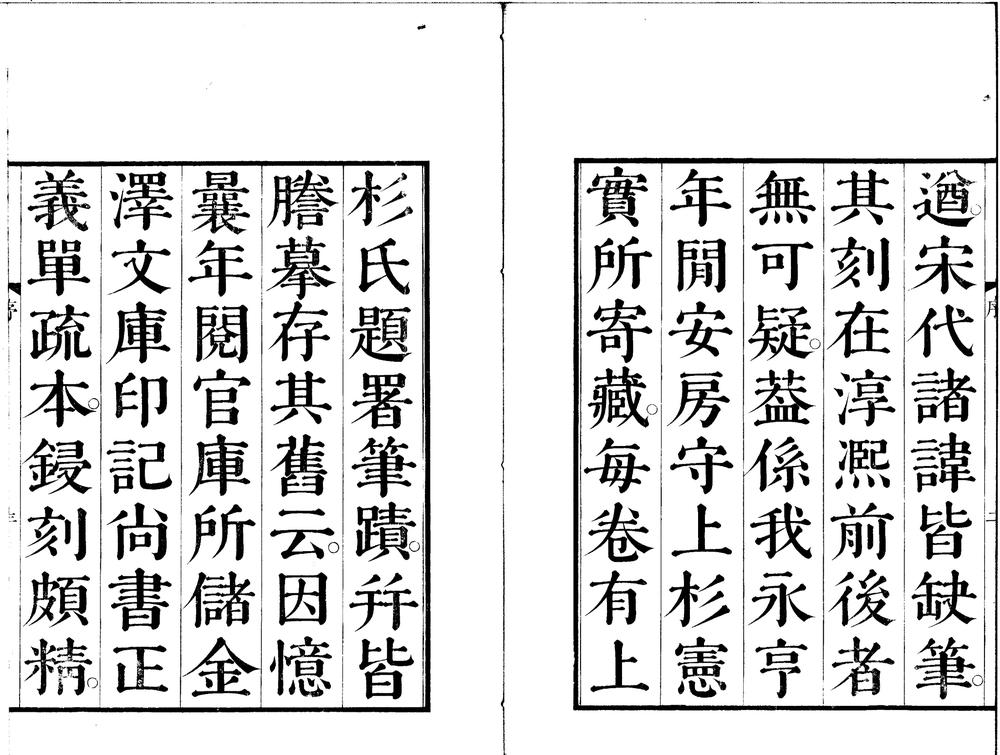 遒。宋代諸諱皆缺筆。
其刻在淳熈前後者
無可疑。葢係我永亨
年閒安房守上杉憲
實所寄藏。每卷有上
杉氏題署筆蹟。幷皆
謄摹存其舊云。因憶
曩年閱官庫所儲金
澤文庫印記尚書正
義單疏本。鋟刻頗精。
序
二